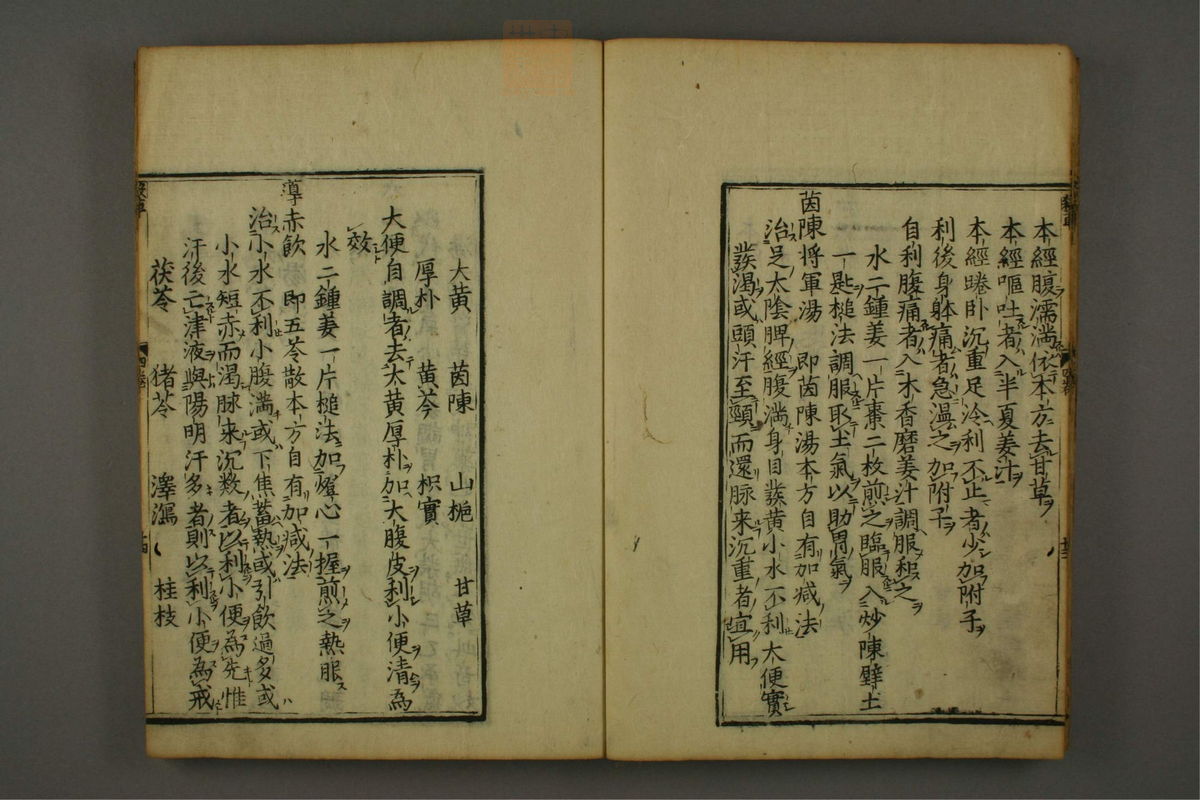 本經腹濡満依本方去甘草
本經嘔吐者入半夏姜汁
本經踡卧沉重足冷利不止者少加附子
利後身躰痛者急温之加附子
自利腹痛者入木香磨姜汁調服和之
水二鍾姜一片棗二枚煎之臨服入炒陳壁土
一匙槌法調服取土氣以助胃氣
茵陳将軍湯　即茵陳湯本方自有加减法
治足太陰脾經腹満身目發黄小水不利大便實
發渴或頭汗至頸而還脉来沉重者宜用
大黄　茵陳　山梔　甘草
厚朴　黄芩　枳實
大便自調者去大黄厚朴加大腹皮利小便清為
效
水二鍾姜一片槌法加燈心一握煎之熱服
導赤飲　即五苓散本方自有加减法
治小水不利小腹満或下焦蓄熱或引飲過多或
小水短赤而渴脉来沉数者以利小便為先惟
汗後亡津液與陽明汗多者則以利小便為戒
茯苓　猪苓　澤瀉　桂枝